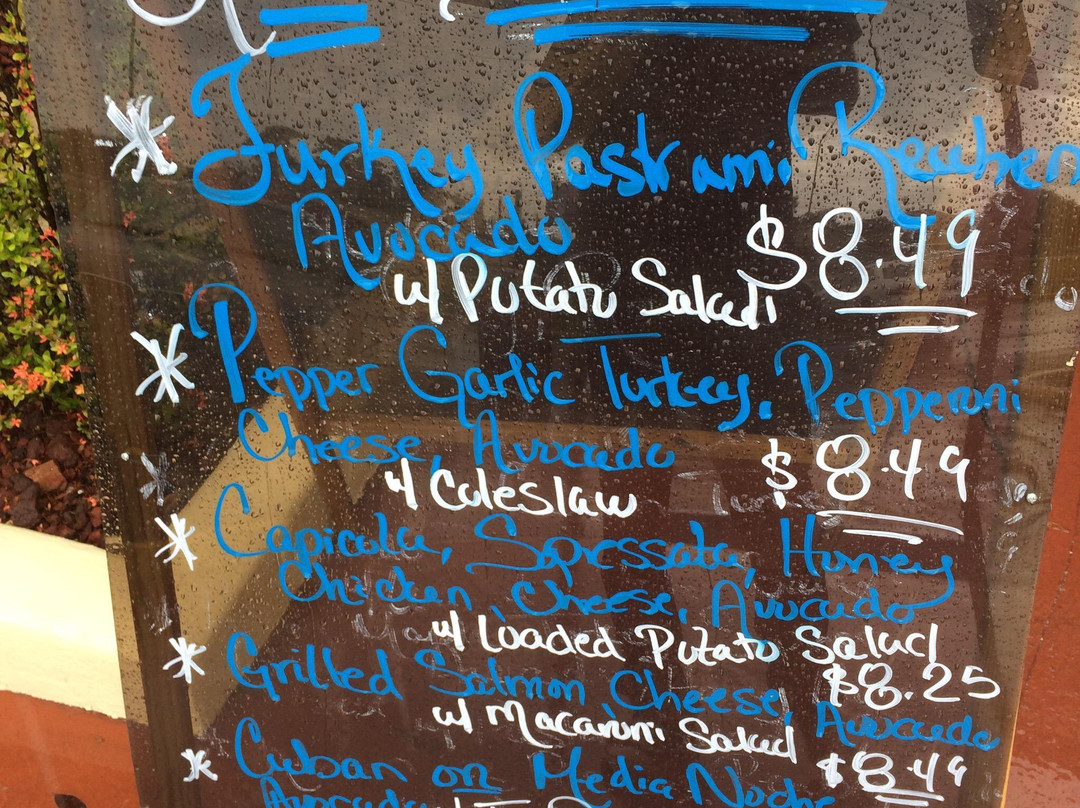 * Turkey Pastrami Reuben
Avocado
w/ Potato Salad $8.49
* Pepper Garlic Turkey, Pepperoni
Cheese, Avocado
w/ Coleslaw $8.49
* Capicola, Sopressata, Honey
Chicken, Cheese, Avocado
w/ Loaded Potato Salad
$8.25
* Grilled Salmon, Cheese, Avocado
w/ Macaroni Salad
$8.49
* Cuban on Media Noche
Avocado w/